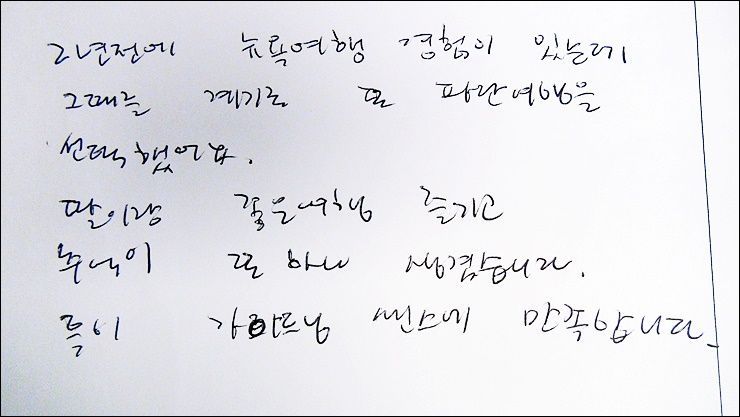 2년전에 뉴욕여행 경험이 있는데
그때를 계기로 또 파란여행을
선택했어요.
딸이랑 좋은여행 즐기고
추억이 또 하나 생겼습니다.
특히 가이드님 센스에 만족합니다.